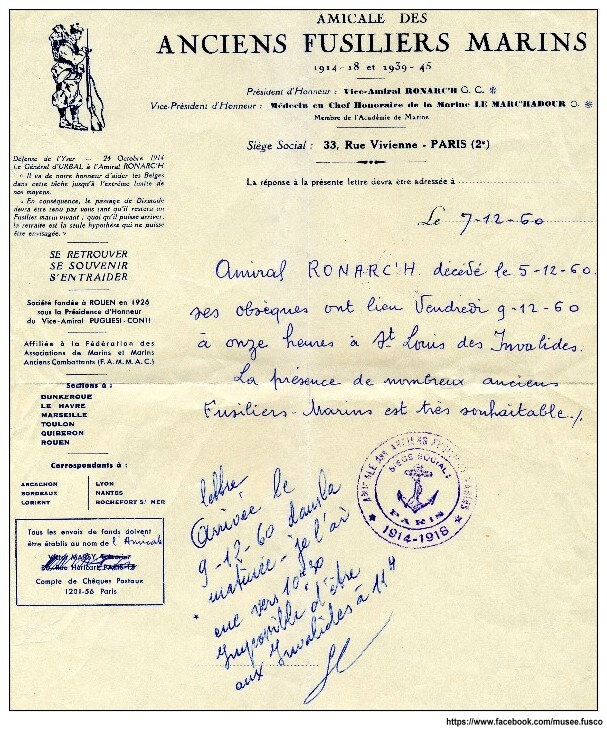 AMICALE DES
ANCIENS FUSILIERS MARINS
1914-18 et 1939-45
Président d'Honneur : Vice-Amiral RONARC'H G. C. ❋
Vice-Président d'Honneur : Médecin en Chef Honoraire de la Marine LE MARC'HADOUR O. ❋
Membre de l'Académie de Marine
Siège Social : 33, Rue Vivienne - PARIS (2e)
La réponse à la présente lettre devra être adressée à
Défense de l'Yser — 24 Octobre 1914
Le Général d'URBAL à l'Amiral RONARC'H
" Il va de notre honneur d'aider les Belges
dans cette tâche jusqu'à l'extrême limite de
nos moyens.
" En conséquence, le passage de Dixmude
devra être tenu par vous tant qu'il restera un
Fusilier marin vivant ; quoi qu'il puisse arriver,
la retraite est la seule hypothèse qui ne puisse
être envisagée. "
SE RETROUVER
SE SOUVENIR
S'ENTRAIDER
Société fondée à ROUEN en 1926
sous la Présidence d'Honneur
du Vice-Amiral PUGLIESI-CONTI
Affiliée à la Fédération des
Associations de Marins et Marins
Anciens Combattants (F.A.M.M.A.C.)
Sections à :
DUNKERQUE
LE HAVRE
MARSEILLE
TOULON
QUIBERON
ROUEN
Correspondants à :
ARCACHON
BORDEAUX
LORIENT
LYON
NANTES
ROCHEFORT S/ MER
Tous les envois de fonds doivent
être établis au nom de l'Amicale
MASSY,
PARIS-13
Compte de Chèques Postaux
1201-56 Paris
Le 7-12-60
Amiral RONARC'H décédé le 5-12-60.
ses obsèques ont lieu Vendredi 9-12-60
à onze heures à St Louis des Invalides.
La présence de nombreux anciens
Fusiliers-Marins est très souhaitable ./.
AMICALE des ANCIENS FUSILIERS MARINS
SIÈGE SOCIAL
PARIS
★ 1914-1918 ★
lettre
Arrivée le
9-12-60 dans la
matinée - je l'ai
eue vers 10h30
Impossible d'être
aux Invalides à 11H
https://www.facebook.com/musee.fusco